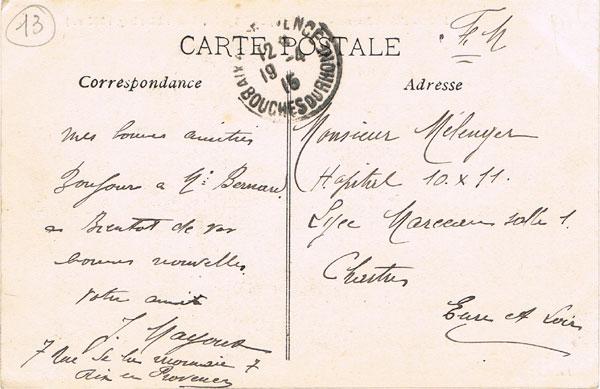 13
CARTE POSTALE
F. M
AIX EN PROVENCE
12
19 -4
15
BOUCHES DU RHONE
Correspondance
mes bonnes amitiés
Bonjour à Mr Bernard
a Bientot de vos
bonnes nouvelles
votre ami
J.
7 Rue de la monnaie 7
Aix en Provence
Adresse
Monsieur
Hôpital 10 x 11.
Lycée Marceau salle 1
Chartres
Eure et Loir